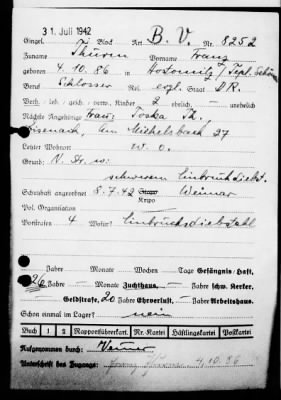 31. Juli 1942
Eingel. Block Art B. V. Nr. 8252
Zuname Thürm Vorname Franz
geboren 4. 10. 86 in Hostomitz / Tepl. Schön.
Beruf Schlosser evgl. Staat D.R.
Verh. led., gesch., verw. Kinder 2 ehelich — unehelich
Nächste Angehörige Frau: Toska Th.
Eisenach, Am Michelsbach 27
Letzter Wohnort w. o.
Grund:
schwerem Einbruchdiebst.
Schutzhaft angeordnet 8. 7. 42 Stapo Kripo Weimar
Pol. Organisation
Vorstrafen 4 Wofür? Einbruchsdiebstahl
Jahre — Monate Wochen — Tage Gefängnis / Haft,
Jahre — Monate Zuchthaus, — Jahre — schw. Kerker,
Geldstrafe, 20 Jahre Ehrverlust, — Jahre Arbeitshaus.
Schon einmal im Lager? nein
Buch 1 2 Rapportführerkart. Nr.-Kartei Häftlingskartei Postkartei
Aufgenommen durch:
Unterschrift des Zugangs: 4. 10. 86